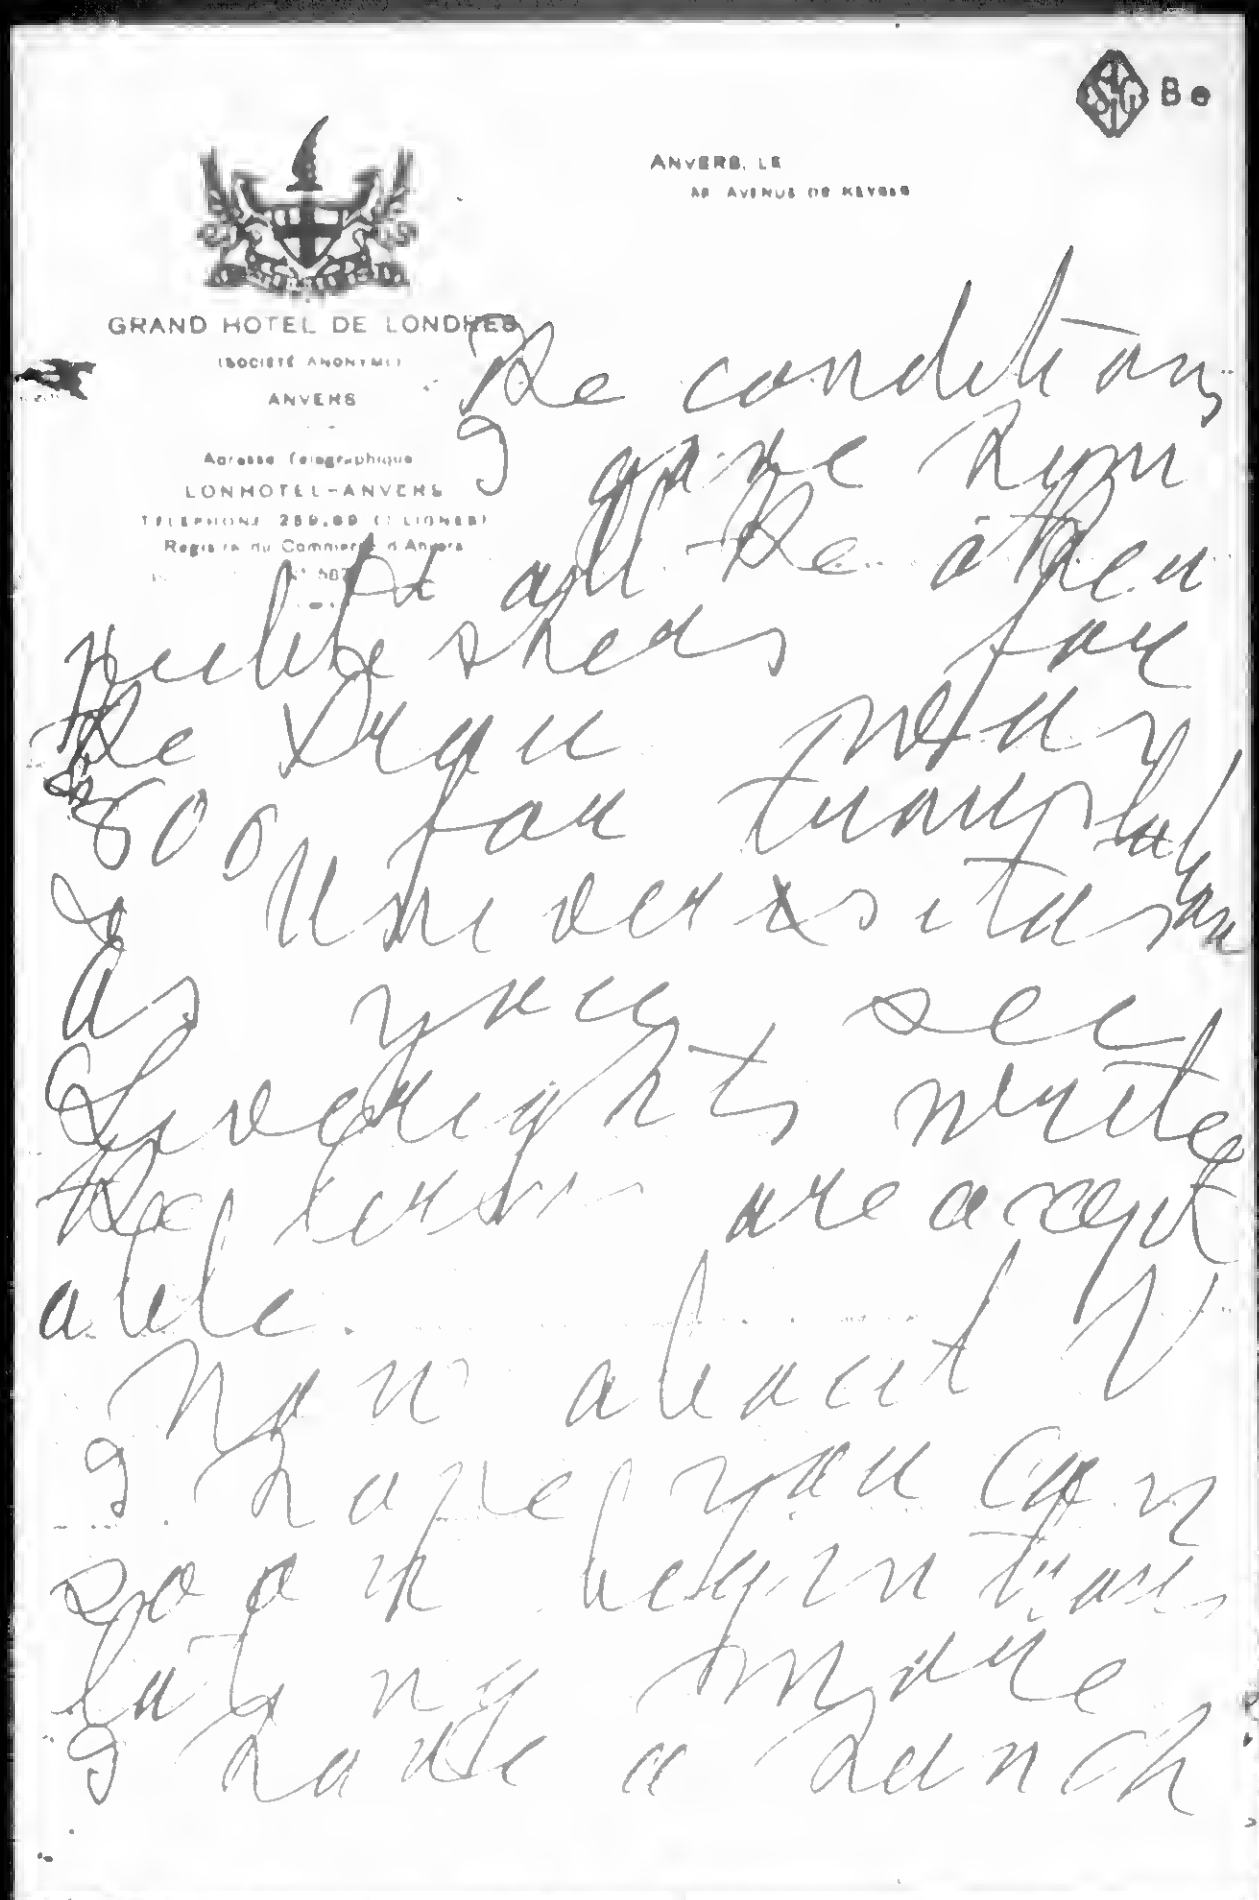 Be
ANVERS, LE
AVENUE DE KEYSER
GRAND HOTEL DE LONDRES
(SOCIÉTÉ ANONYME)
ANVERS
Adresse Télégraphique
LONHOTEL-ANVERS
TÉLÉPHONE 259,69 (LIGNES)
Registre du Commerce d'Anvers
The conditions
I gave him
all the other
publishers for
the
800 for translation
Universitas
As you see
Liverights write
the terms are accept
able.
Now about V
I hope you can
soon begin trans
lating more
I have a hunch